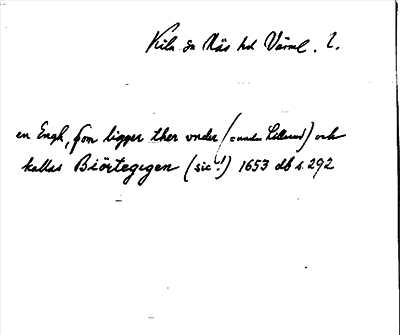 Kila sn Näs hd Värml. l.
en Engh, som ligger ther under (= under Lillerud) och
kallas Biörtegigen (sic!) 1653 db s. 292